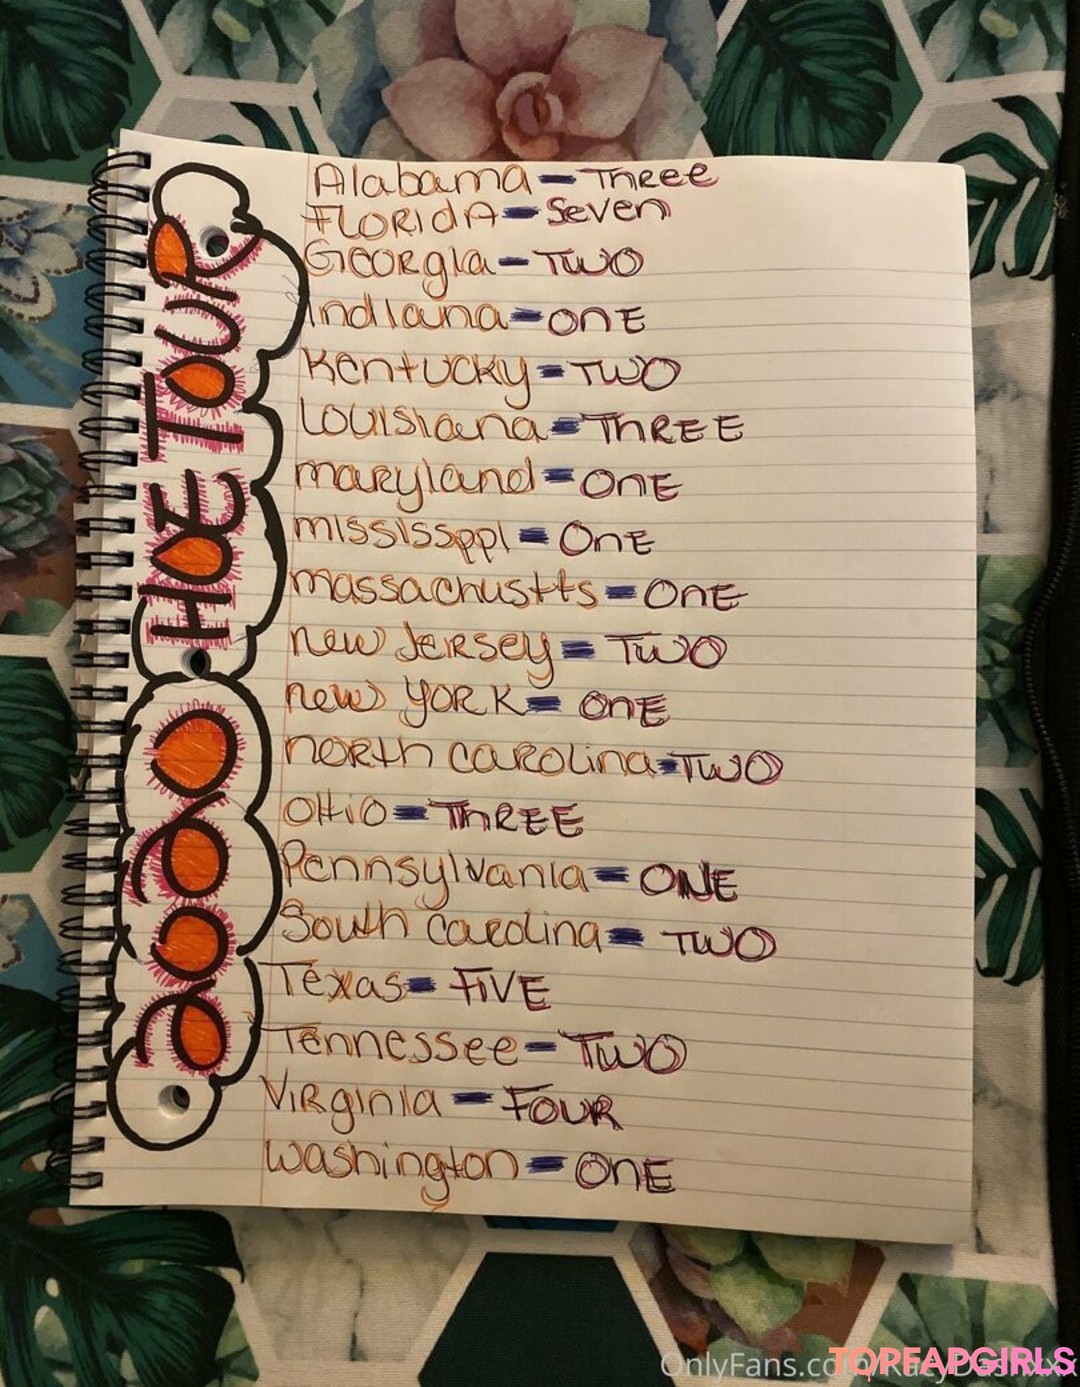 2020 HOE TOUR
Alabama - Three
FLORIdA - Seven
GEORgIa - TWO
Indiana - ONE
Kentucky - TWO
Louisiana - ThREE
maryland - ONE
mississppi - OnE
massachustts - OnE
new Jersey - TWO
new YORK - OnE
north carolina - TWO
OHiO - ThREE
Pennsylvania - ONE
South carolina - TWO
Texas - FiVE
Tennessee - TWO
VIRginia - FOUR
Washington - OnE
OnlyFans.com
TOPFAPGIRLS